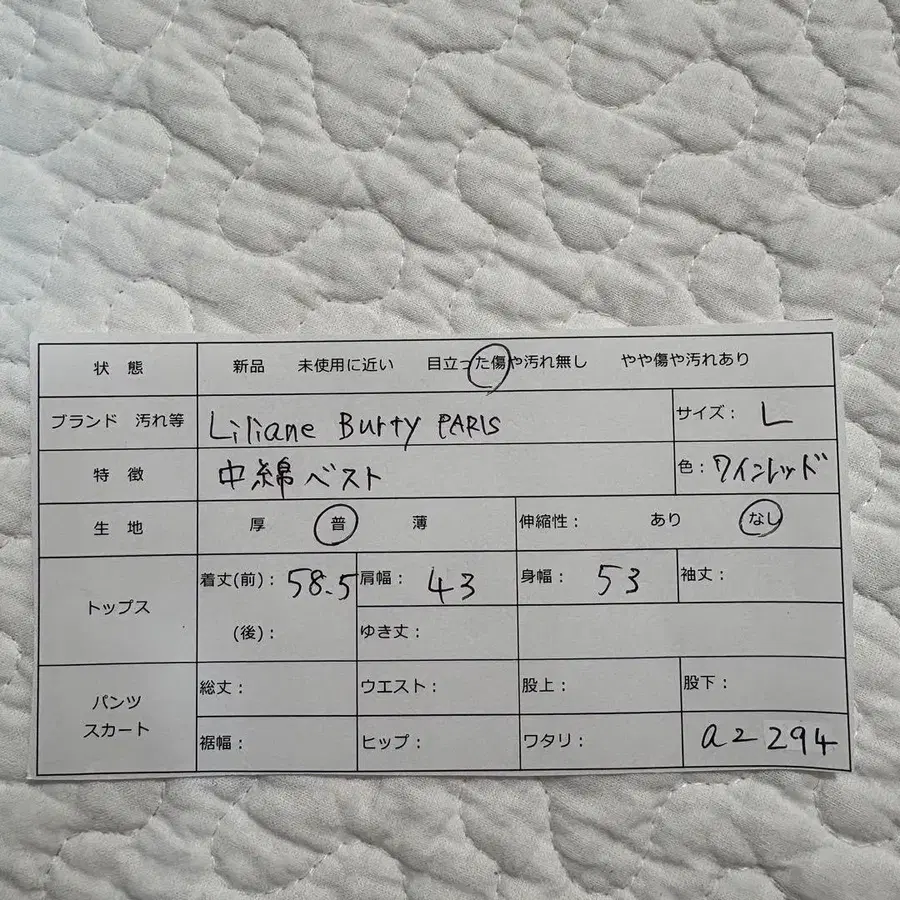 状 態 新品 未使用に近い 目立った傷や汚れ無し やや傷や汚れあり
ブランド 汚れ等 Liliane Burty PARIS サイズ: L
特 徴 中綿ベスト 色: ワインレッド
生 地 厚 普 薄 伸縮性: あり なし
トップス 着丈(前): 58.5 肩幅: 43 身幅: 53 袖丈:
(後): ゆき丈:
パンツ スカート 総丈: ウエスト: 股上: 股下:
裾幅: ヒップ: ワタリ: a2 294